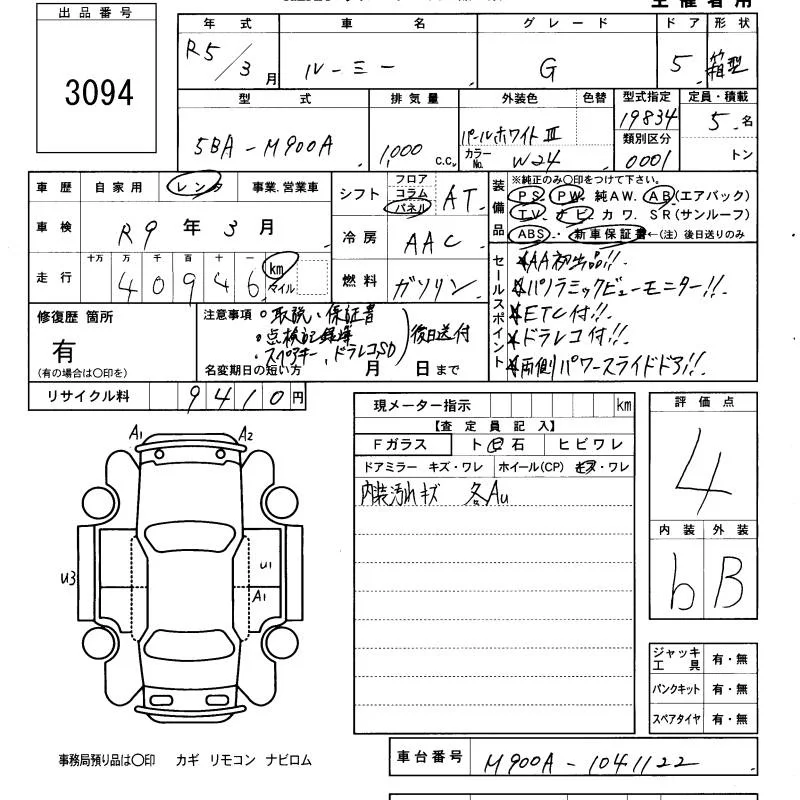 出品番号
3094
年式 車名 グレード ドア 形状
R5/3月 ルーミー G 5 箱型
型式 排気量 外装色 色替 型式指定 定員・積載
5BA-M900A 1,000 c.c. パールホワイトⅢ 19834 5名
カラーNo. W24 類別区分 0001 トン
車歴 自家用 レンタ 事業.営業車
シフト フロア コラム パネル AT
装備品 ※純正のみ○印をつけて下さい。
PS PW 純AW. AB(エアバック)
TV ナビ カワ. SR(サンルーフ)
ABS. 新車保証書←(注)後日送りのみ
車検 R9年3月
冷房 AAC
走行 十万 万 千 百 十 一
40946 km マイル
燃料 ガソリン
セールスポイント
★AA初出品!!
★パノラミックビューモニター!!
★ETC付!!
★ドラレコ付!!
★両側パワースライドドア!!
修復歴 箇所
有
(有の場合は○印を)
注意事項
・取説、保証書
・点検記録簿
・スペアキー、ドラレコSD
後日送付
名変期日の短い方 月 日まで
リサイクル料 9410円
現メーター指示 km
【査定員記入】
Fガラス ト石 ヒビワレ
ドアミラー キズ・ワレ ホイール(CP) キズ・ワレ
内装汚れキズ 各Au
評価点
4
内装 外装
b B
A1 A2
U3 U1
A1
ジャッキ工具 有・無
パンクキット 有・無
スペアタイヤ 有・無
事務局預り品は○印 カギ リモコン ナビロム
車台番号 M900A-1041122